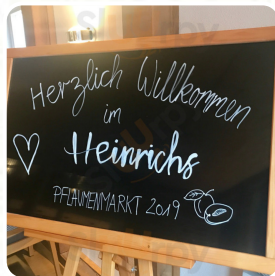 Herzlich Willkommen
im
Heinrichs
PFLAUMENMARKT 2019